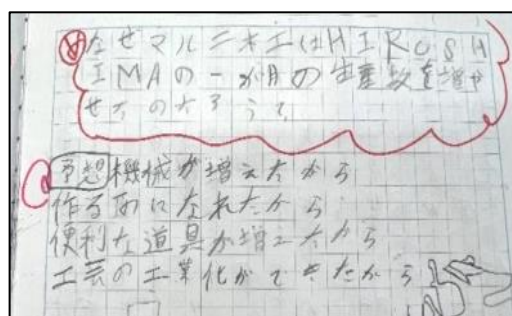 め なぜマルニ木工はHIROSH
IMAの一か月の生産数を増や
せたのだろうて
予想 機械が増えたから
作るのになれたから
便利な道具が増えたから
工芸の工業化ができたから